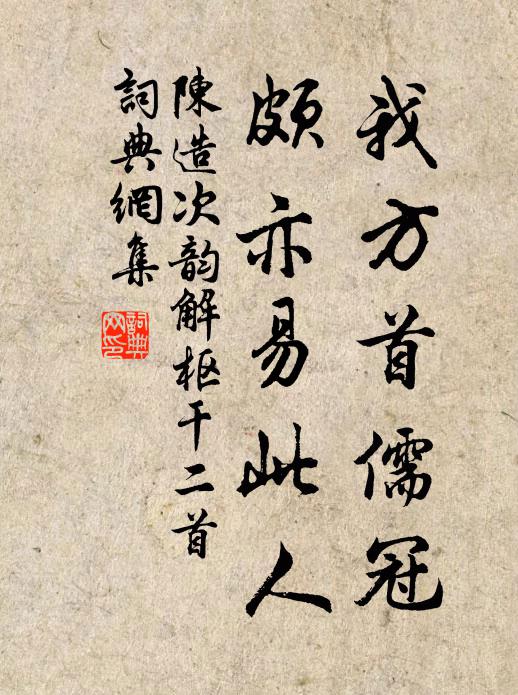 我方首儒冠
頗亦易此人
陳造次韵解枢干二首
詞典網集
詞典網印